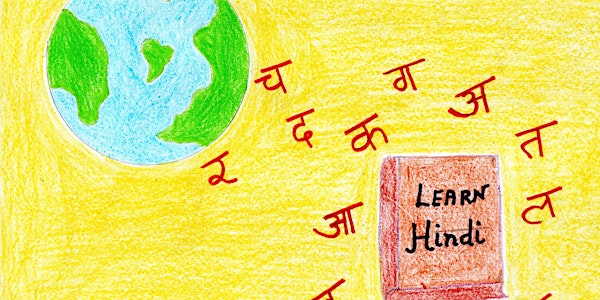 च
ग
अ
द
क
त
र
LEARN
Hindi
आ
ल